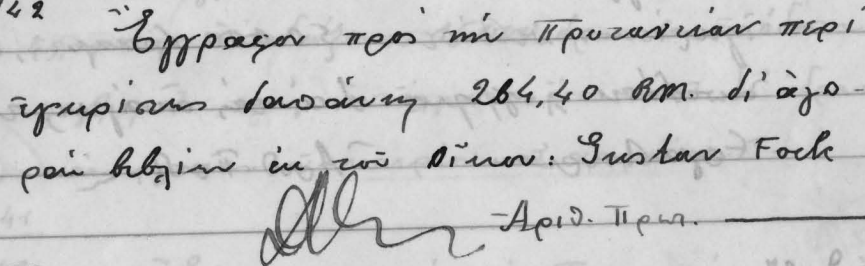 42
Ἔγγραφον πρὸς τὴν Πρυτανείαν περὶ
ἐγκρίσεως δαπάνης 264,40 RM. δι' ἀγο-
ρὰν βιβλίων ἐκ τοῦ Οἴκου: Gustav Fock
Ἀριθ. Πρωτ.